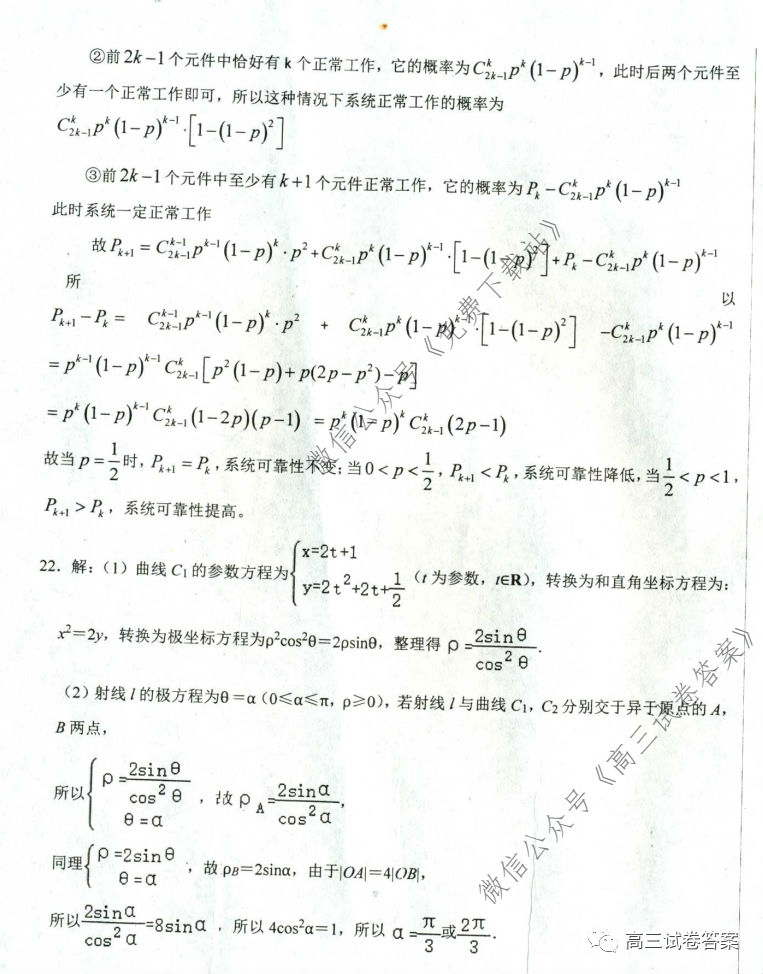 ②前2k−1个元件中恰好有 k 个正常工作，它的概率为C_{2k−1}^{k}p^{k}(1−p)^{k−1}，此时后两个元件至
少有一个正常工作即可，所以这种情况下系统正常工作的概率为
C_{2k−1}^{k}p^{k}(1−p)^{k−1}·[1−(1−p)^{2}]
③前2k−1个元件中至少有k+1个元件正常工作，它的概率为P_{k}−C_{2k−1}^{k}p^{k}(1−p)^{k−1}
此时系统一定正常工作
故P_{k+1}=C_{2k−1}^{k−1}p^{k−1}(1−p)^{k}·p^{2}+C_{2k−1}^{k}p^{k}(1−p)^{k−1}·[1−(1−p)^{2}]+P_{k}−C_{2k−1}^{k}p^{k}(1−p)^{k−1}
所 以
P_{k+1}−P_{k}= C_{2k−1}^{k−1}p^{k−1}(1−p)^{k}·p^{2} + C_{2k−1}^{k}p^{k}(1−p)^{k−1}·[1−(1−p)^{2}] −C_{2k−1}^{k}p^{k}(1−p)^{k−1}
=p^{k−1}(1−p)^{k−1}C_{2k−1}^{k}[p^{2}(1−p)+p(2p−p^{2})−p]
=p^{k}(1−p)^{k−1}C_{2k−1}^{k}(1−2p)(p−1) =p^{k}(1−p)^{k}C_{2k−1}^{k}(2p−1)
故当p=1/2时，P_{k+1}=P_{k}，系统可靠性不变；当0<p<1/2，P_{k+1}<P_{k}，系统可靠性降低，当1/2<p<1，
P_{k+1}>P_{k}，系统可靠性提高。
22．解：（1）曲线 C₁的参数方程为{x=2t+1 y=2t²+2t+1/2（t 为参数，t∈R），转换为和直角坐标方程为：
x²＝2y，转换为极坐标方程为ρ²cos²θ＝2ρsinθ，整理得 ρ=2sinθ/cos²θ.
（2）射线 l 的极方程为θ＝α（0≤α≤π，ρ≥0），若射线 l 与曲线 C₁，C₂分别交于异于原点的 A，
B 两点，
所以{ρ=2sinθ/cos²θ θ=α，故ρ_{A}=2sinα/cos²α，
同理{ρ=2sinθ θ=α，故ρ_{B}＝2sinα，由于|OA|＝4|OB|，
所以2sinα/cos²α=8sinα，所以 4cos²α＝1，所以 α=π/3或2π/3.
微信公众号《免费下载站》
微信公众号《高三试卷答案》
高三试卷答案